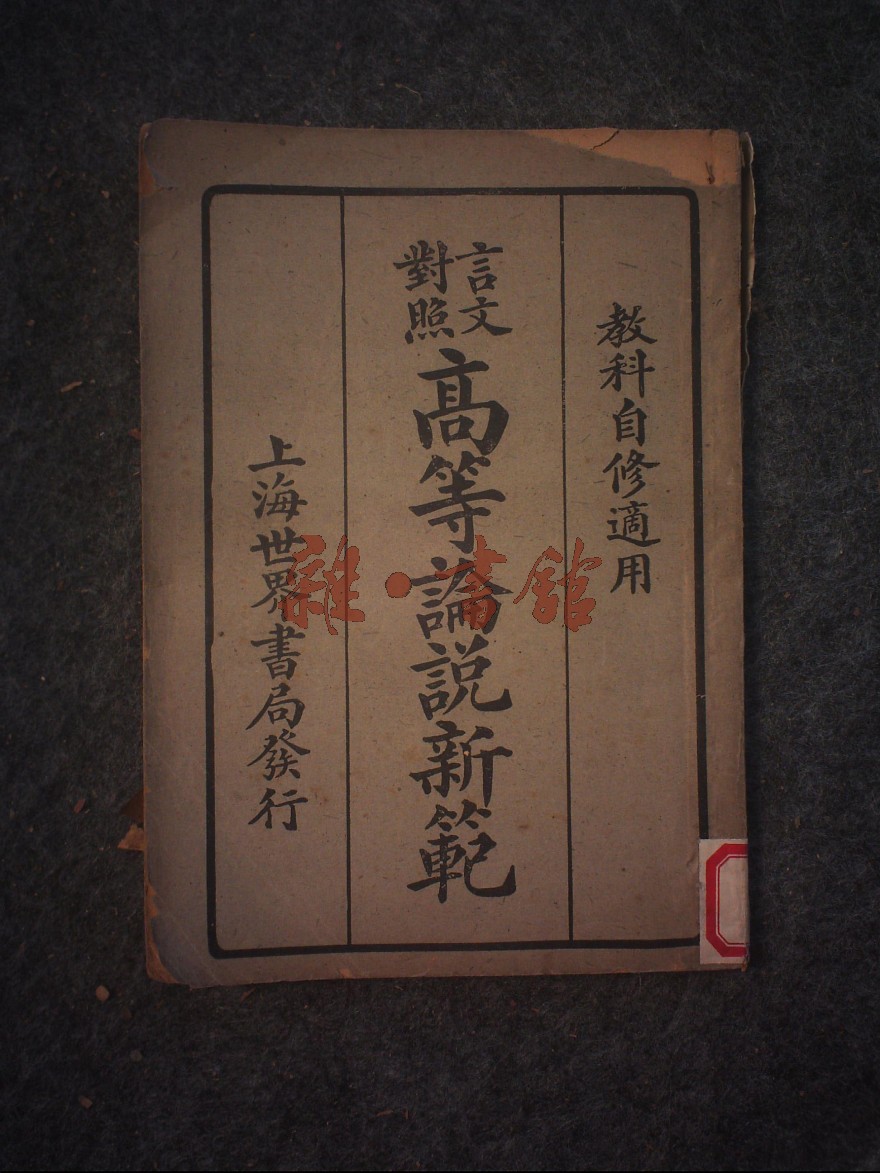 教科自修適用
言文
對照
高等論説新範
上海世界書局發行
雜·書館